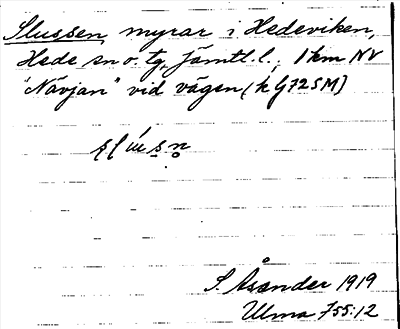 Slussen myrar i Hedeviken,
Hede sn o. tg Jämtl. l., 1 km NV
"Nävjan" vid vägen (k G 72 SM)
S. Åsander 1919
Ulma 755:12